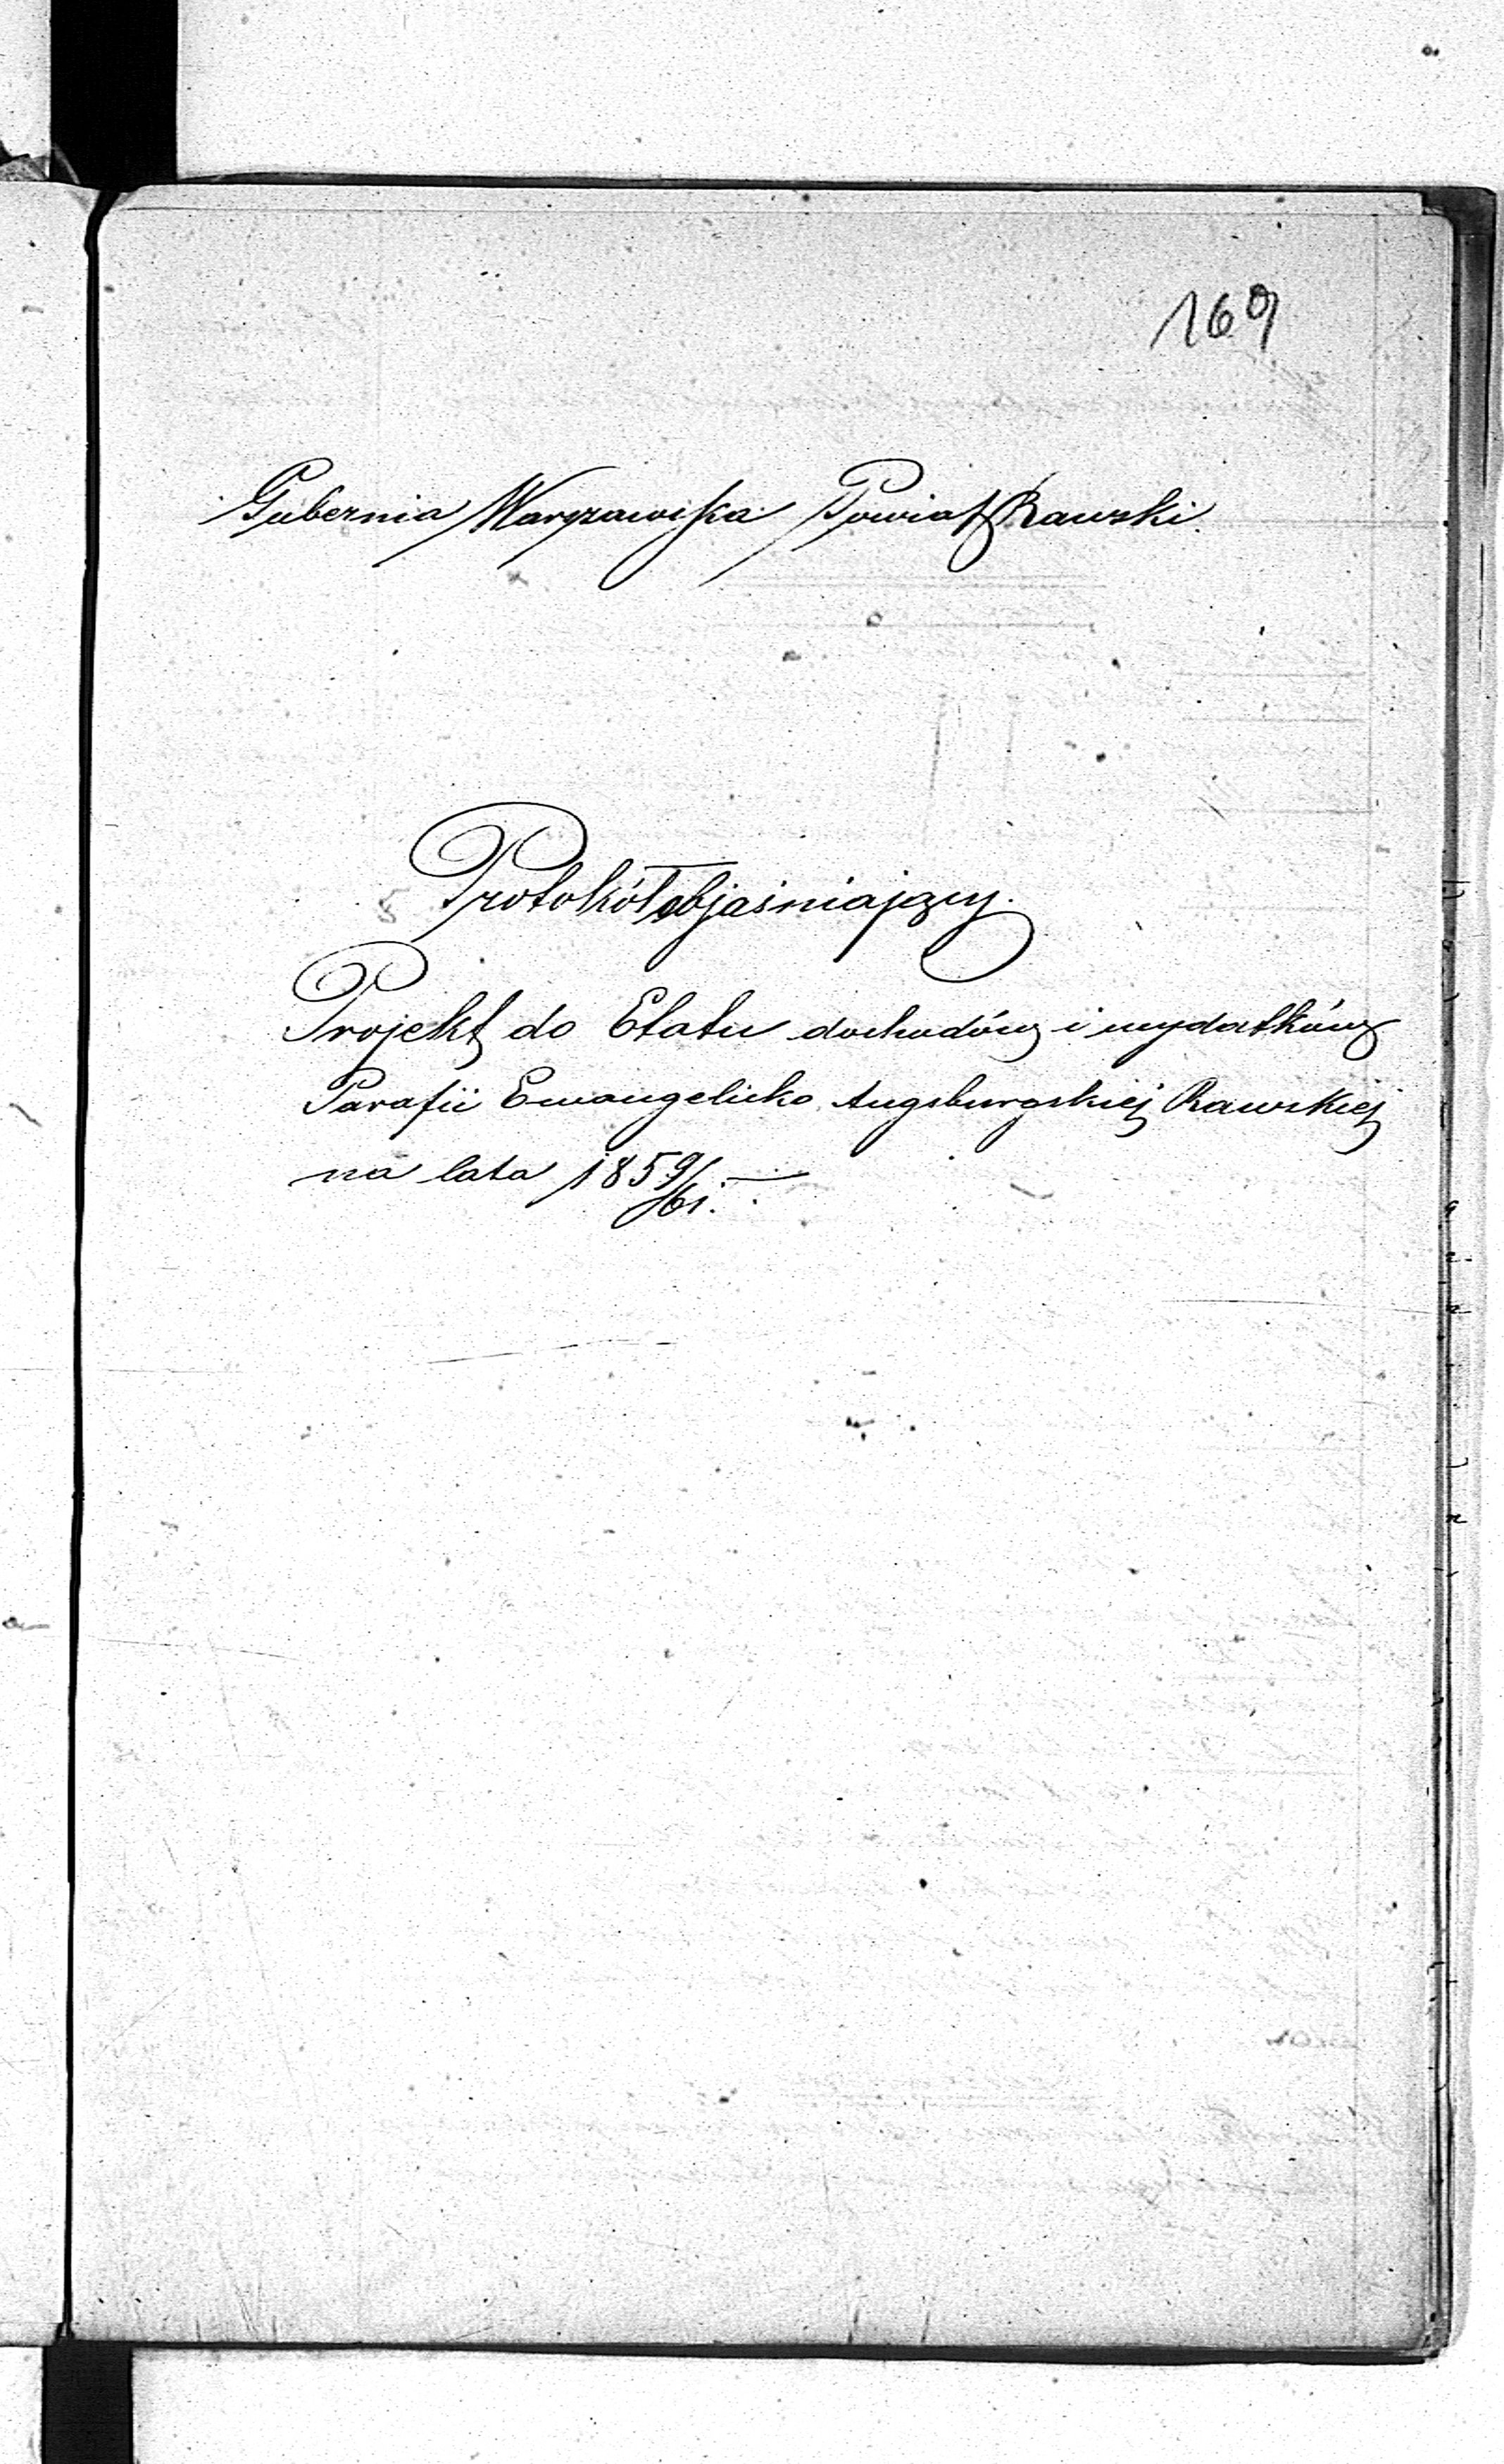 169
Gubernia Warszawska Powiat Rawski.
Protokół objaśniający.
Projekt do Etatu dochodów i wydatków
Parafii Ewangelicko Augsburgskiéj Rawskiej
na lata 1859/61. —